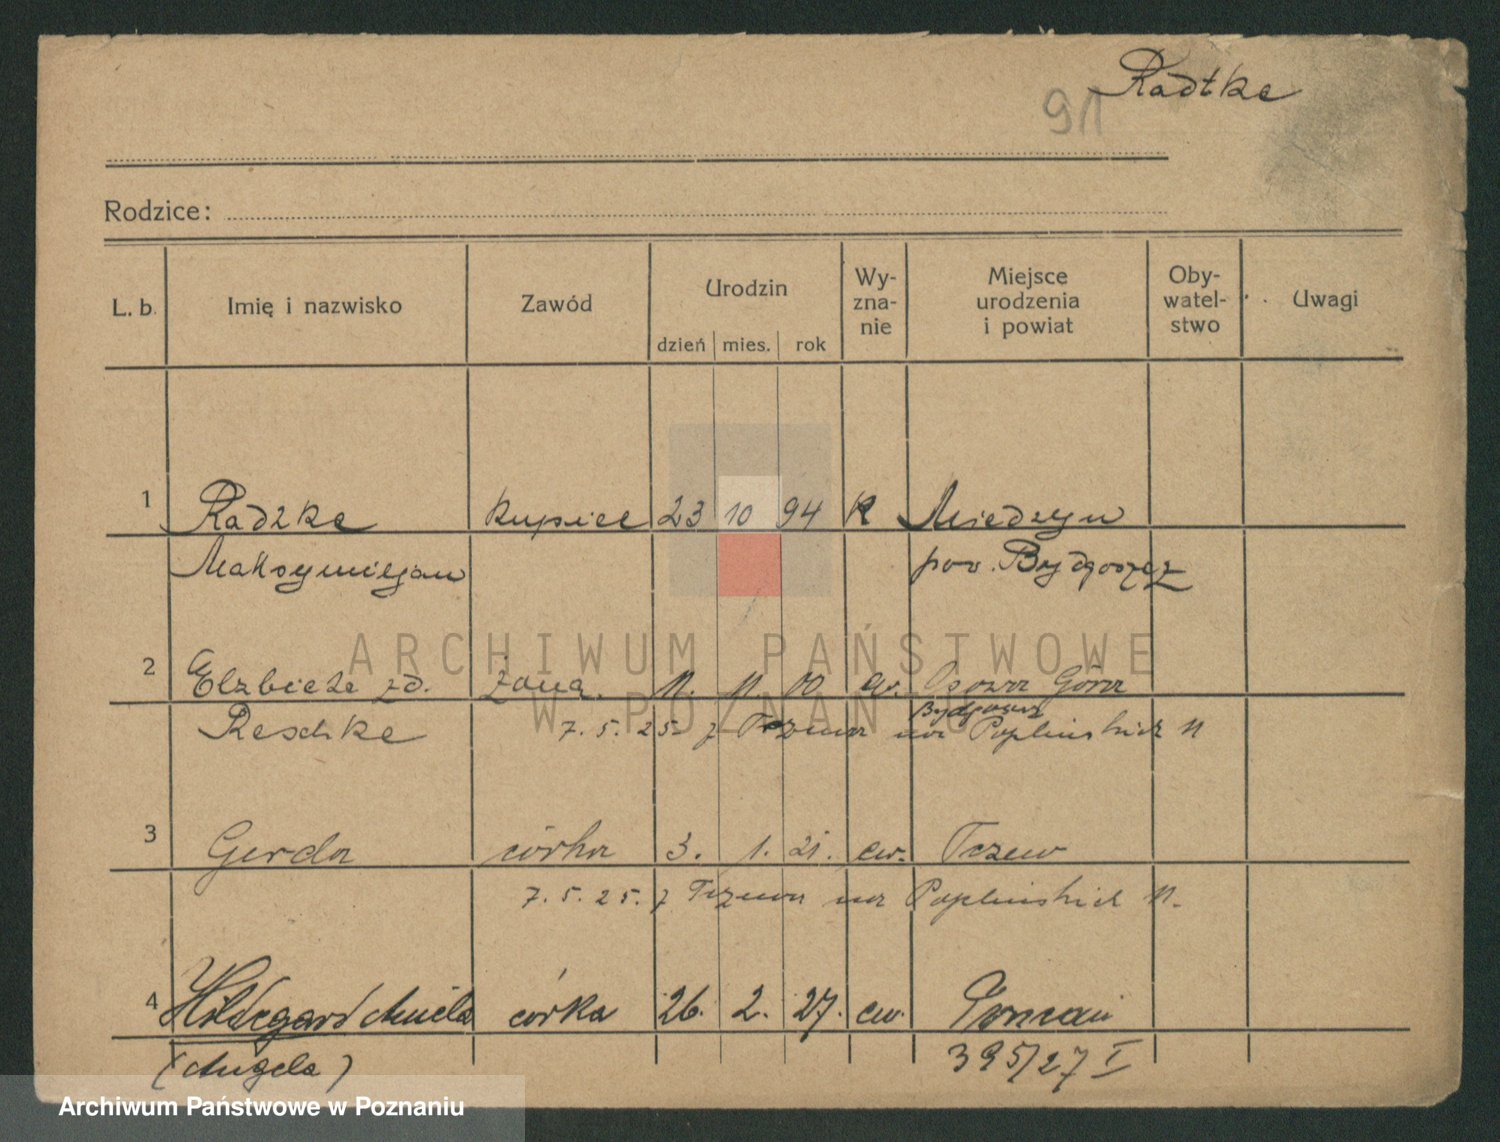 Radtke
91
Rodzice:
L. b. Imię i nazwisko Zawód Urodzin dzień mies. rok Wy-zna-nie Miejsce urodzenia i powiat Oby-watel-stwo Uwagi
1 Radzke kupiec 23 10 94 K Miedzyn
Maksymiljan pow. Bydgoszcz
ARCHIWUM PAŃSTWOWE
2 Elzbieta zd. żona. 11. 11. 00 ew. Osowa Góra
W POZNANIU
Bydgoszcz
Reschke 7. 5. 25. z Tczewa na Poplinskich 11
3 Gerda córka 3. 1. 21. ew. Tczew
7. 5. 25. z Tczewa na Poplinskich 11.
4 Hildegard Aniela córka 26. 2. 27. ew. Poznań
(Angela) 395/27 I
Archiwum Państwowe w Poznaniu